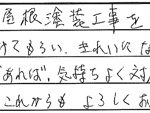 屋根塗装工事を
けてもらい、きれいにな
あれば、気持ちよく対
これからも よろしくお